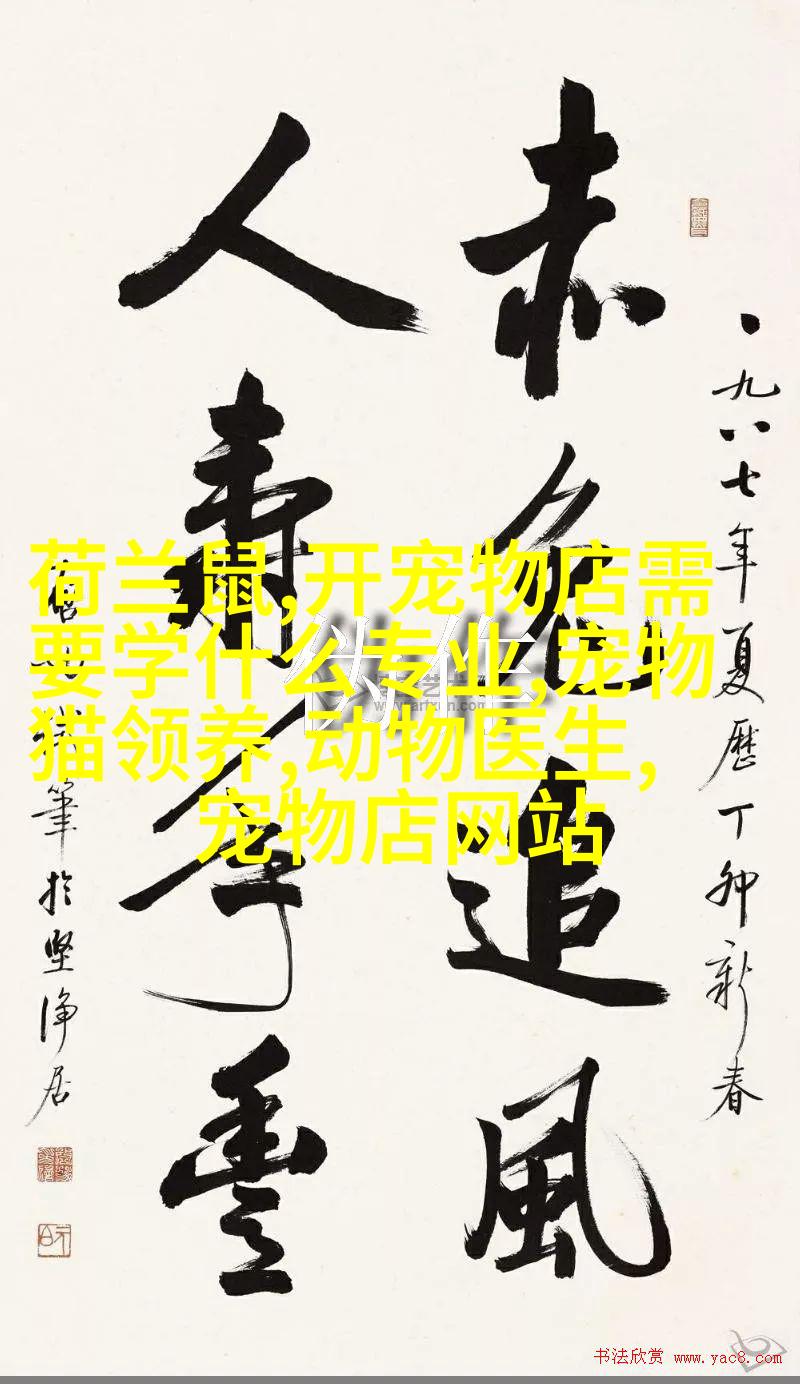 一九八七年夏歷丁卯新春
赤兔追風
人壽年豐
啓功試筆於堅淨居
荷兰鼠,开宠物店需
要学什么专业,宠物
猫领养,动物医生,
宠物店网站
书法欣赏 www.yac8.com